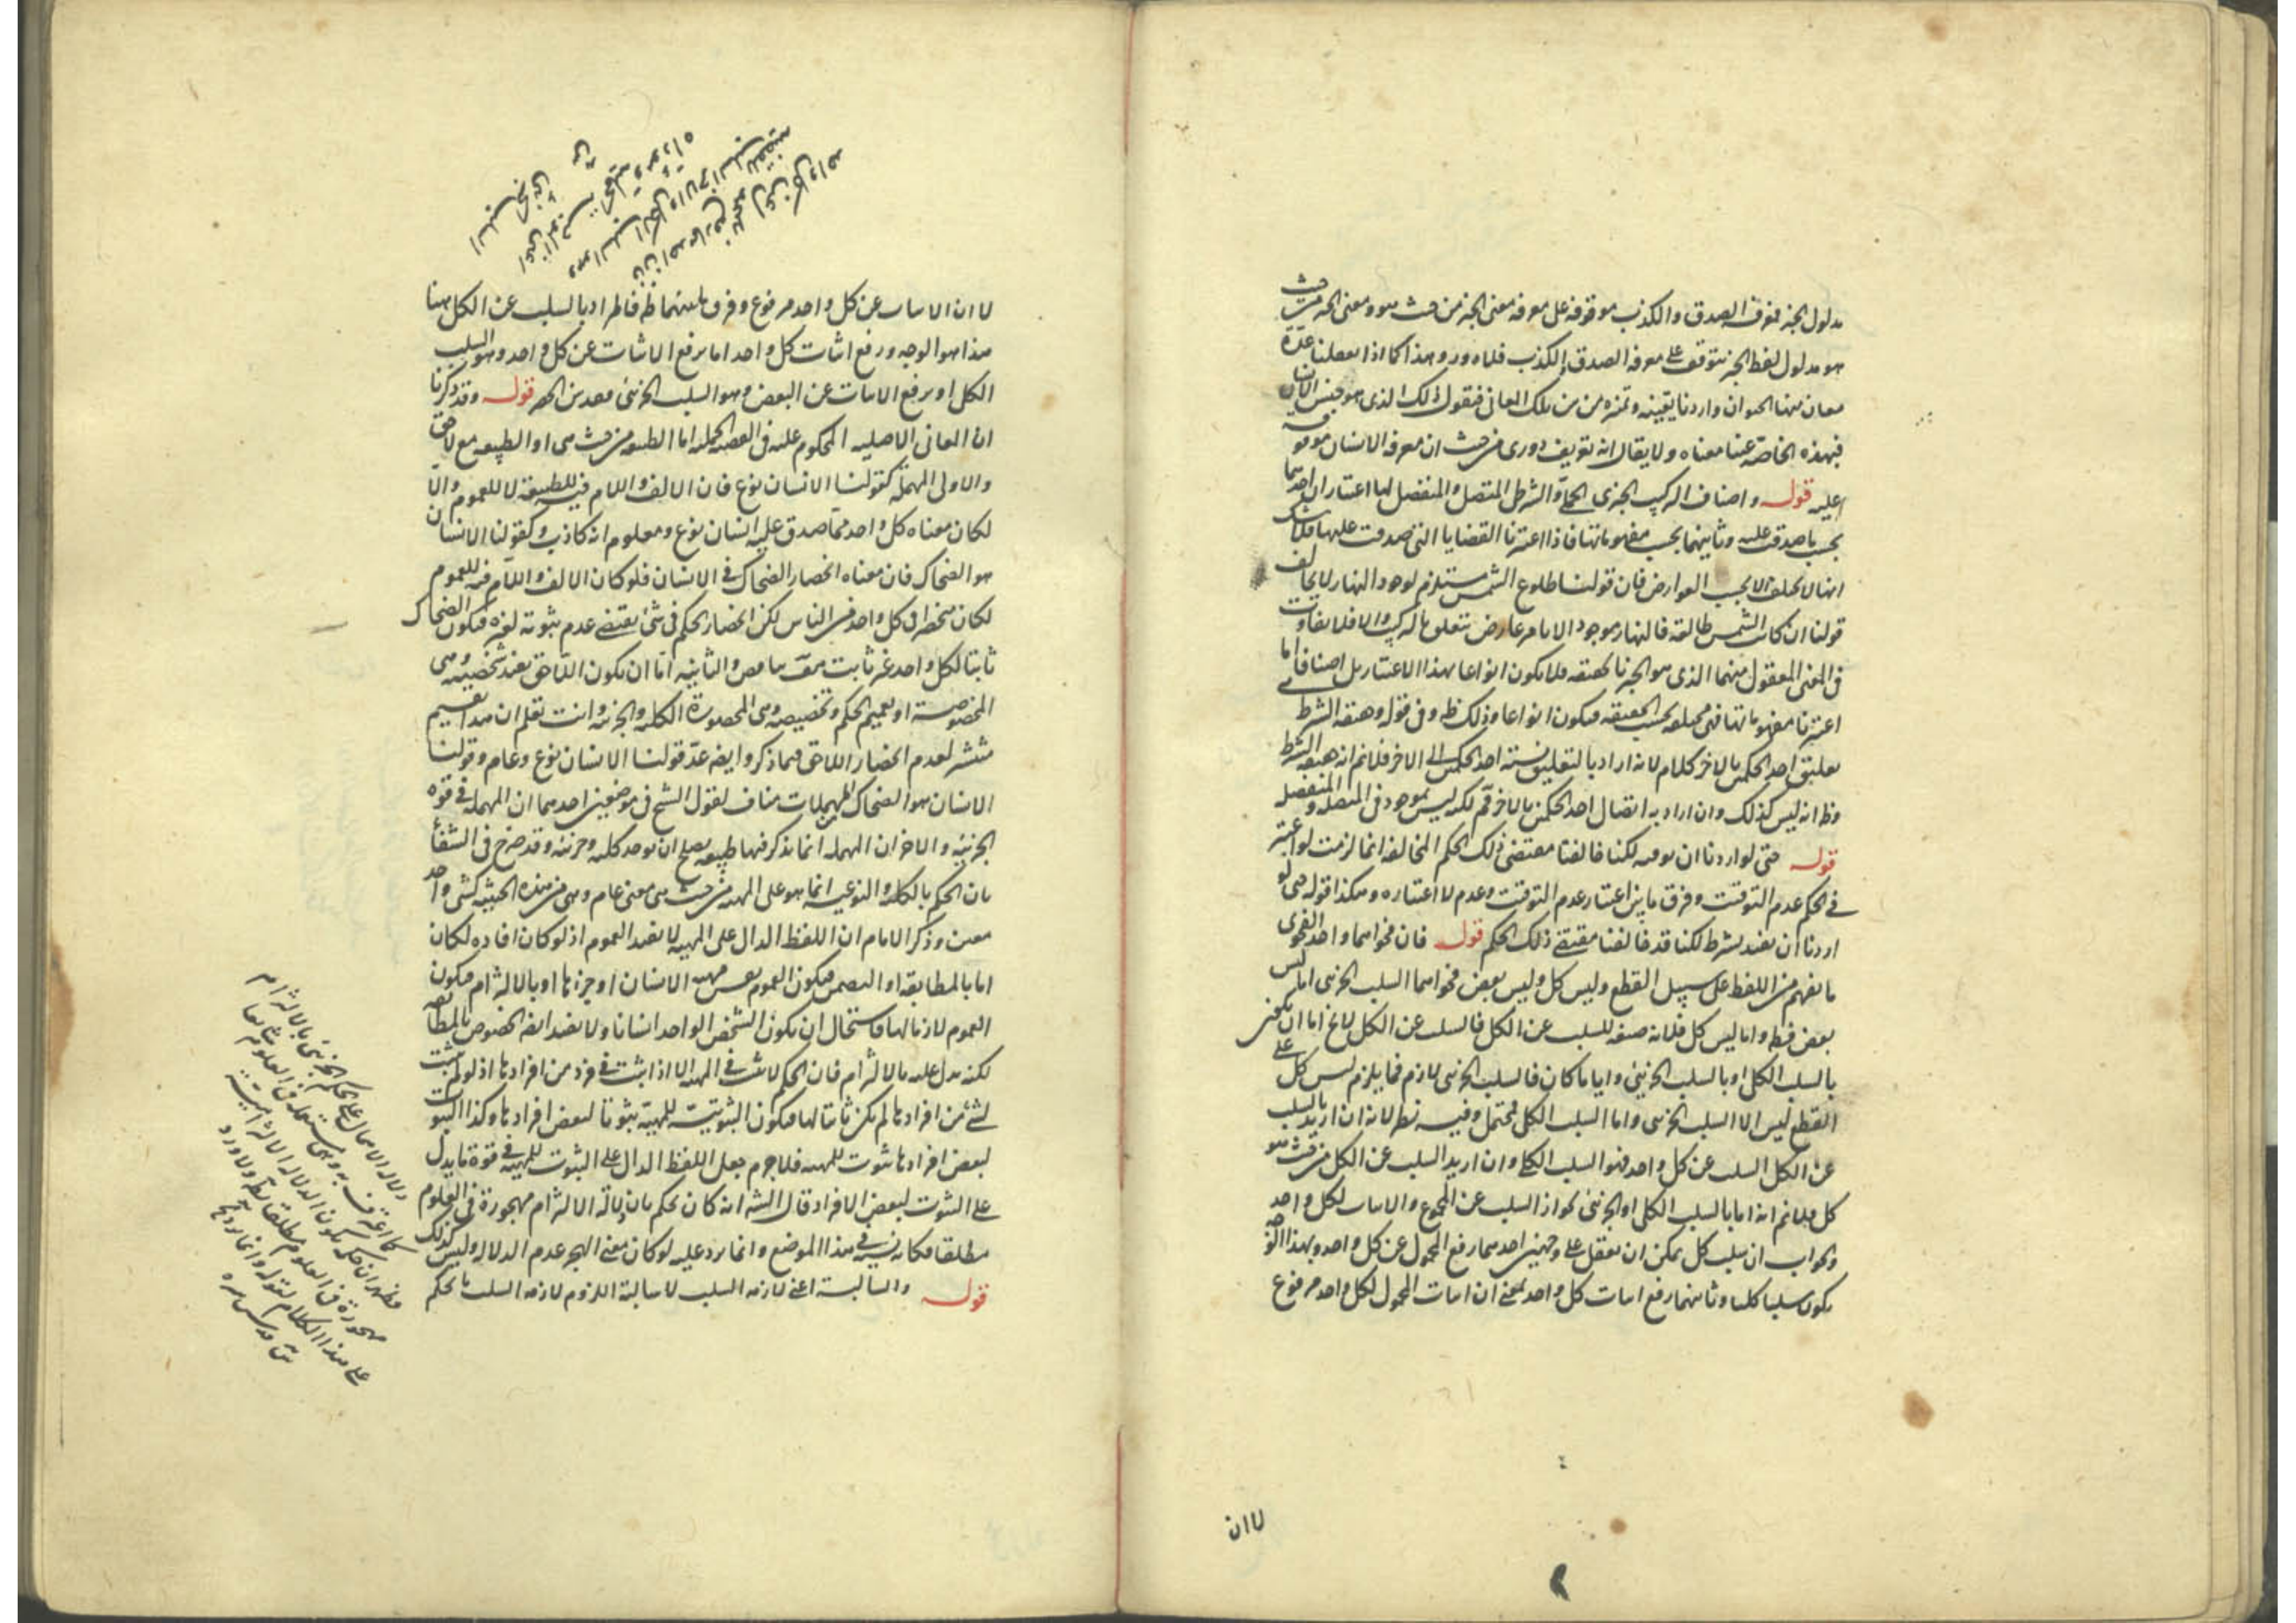 مدلول الخبر فمعرفة الصدق والكذب موقوفة على معرفة معنى الخبر من حيث هو ومعنى الخبر من حيث
هو مدلول لفظ الخبر يتوقف على معرفة الصدق والكذب فلا دور وهذا كما اذا تعقلنا عدة
معان منها الحيوان واردنا تعيينه وتميزه من بين تلك المعاني فنقول ذلك الذي هو جنس الانسان
فبهذه الخاصة عينا معناه ولا يقال انه تعريف دوري من حيث ان معرفة الانسان موقوفة
عليه قوله واصناف التركيب الخبري الحملي والشرطي المتصل والمنفصل لها اعتباران احدهما
بحسب ما صدقت عليه وثانيهما بحسب مفهوماتها فاذا اعتبرنا القضايا التي صدقت عليها فلا شك
انها لا تختلف الا بحسب العوارض فان قولنا طلوع الشمس مستلزم لوجود النهار لا يخالف
قولنا ان كانت الشمس طالعة فالنهار موجود الا بامر عارض يتعلق بالتركيب والا فلا تفاوت
في المعنى المعقول منهما الذي هو الخبر بالحقيقة فلا يكون انواعا بهذا الاعتبار بل اصنافا اما
اعتبرنا مفهوماتها فهي مختلفة بحسب الحقيقة فيكون انواعا وذلك ظ وفي قوله وحقيقة الشرط
تعليق احد الحكمين بالاخر كلام لانه اراد بالتعليق نسبة احد الحكمين الى الاخر فلانم انه حقيقة الشرط
وظ انه ليس كذلك وان اراد به اتصال احد الحكمين بالاخر فم لكنه ليس بموجود في المتصلة والمنفصلة
قوله حتى لو اردنا ان نوقته لكنا خالفنا مقتضى ذلك الحكم المخالفة انما لزمت لو اعتبر
في الحكم عدم التوقيت وفرق ما بين اعتبار عدم التوقيت وعدم لا اعتباره وهكذا قوله حتى لو
اردنا ان نقيده بشرط لكنا قد خالفنا مقتضى ذلك الحكم قوله فان فحواهما واحد الفحوى
ما يفهم من اللفظ على سبيل القطع وليس كل وليس بعض فحواهما السلب الجزئي اما ليس
بعض فظ واما ليس كل فلانه صيغة للسلب عن الكل فالسلب عن الكل لا يخ اما ان يكون
بالسلب الكلي او بالسلب الجزئي وايا ما كان فالسلب الجزئي لازم فما يلزم ليس كل على
القطع ليس الا السلب الجزئي واما السلب الكلي فمحتمل وفيه نظر لانه ان اريد بالسلب
عن الكل السلب عن كل واحد فهو السلب الكلي وان اريد السلب عن الكل من حيث هو
كل فلانم انه اما بالسلب الكلي او الجزئي لجواز السلب عن المجموع والاثبات لكل واحد
والجواب ان سلب كل يمكن ان يتعقل على وجهين احدهما رفع المحمول عن كل واحد وبهذا الوجه
يكون سلبا كليا وثانيهما رفع اثبات كل واحد بمعنى ان اثبات المحمول لكل واحد مرفوع
لا ان
لا ان الاثبات عن كل واحد مرفوع وفرق ما بينهما ظ فالمراد بالسلب عن الكل هنا
هذا هو الوجه ورفع اثبات كل واحد اما برفع الاثبات عن كل واحد وهو السلب
الكلي او برفع الاثبات عن البعض وهو السلب الجزئي قوله وقد ذكرنا
ان المعاني الاصلية المحكوم عليه في القضية الحملية اما الطبيعة من حيث هي او الطبيعة مع لاحق
والاولى المهملة كقولنا الانسان نوع فان الالف واللام فيه للطبيعة لا للعموم والا
لكان معناه كل واحد مما صدق عليه انسان نوع ومعلوم انه كاذب وكقولنا الانسان
هو الضحاك فان معناه انحصار الضحاك في الانسان فلو كان الالف واللام فيه للعموم
لكان منحصرا في كل واحد من الناس لكن انحصار الحكم في شئ يقتضي عدم ثبوته لغيره فيكون الضحاك
ثابتا لكل واحد غير ثابت والثانية اما ان يكون اللاحق يفيد شخصيته وهي
المخصوصة او تعميم الحكم وتخصيصه وهي المحصورة الكلية والجزئية وانت تعلم ان هذا التقسيم
منتشر لعدم انحصار اللاحق فيما ذكر وايضا عد قولنا الانسان نوع وعام وقولنا
الانسان هو الضحاك من المهملات مناف لقول الشيخ في موضعين احدهما ان المهملة في قوة
الجزئية والاخر ان المهملة انما يذكر فيها طبيعة يصلح ان توجد كلية وجزئية وقد صرح في الشفا
بان الحكم بالكلية والنوعية انما هو على المهية من حيث هي معنى عام وهي من هذه الحيثية كشئ واحد
معين وذكر الامام ان اللفظ الدال على المهية لا يفيد العموم اذ لو كان افاده لكان
اما بالمطابقة او التضمن فيكون العموم نفس مهية الانسان او جزءها او بالالتزام فيكون
العموم لازما لها فاستحال ان يكون الشخص الواحد انسانا ولا يفيد ايضا الخصوص بالمطابقة
لكنه يدل عليه بالالتزام فان الحكم لا يثبت في المهية الا اذا ثبت في فرد من افرادها اذ لو لم يثبت
لشئ من افرادها لم يكن ثابتا لها فيكون الثبوت للمهية ثبوتا لبعض افرادها وكذا الثبوت
لبعض افرادها ثبوت للمهية فلا جرم جعل اللفظ الدال على الثبوت للمهية في قوة ما يدل
على الثبوت لبعض الافراد قال الش انه كان يحكم بان دلالة الالتزام مهجورة في العلوم
مطلقا فكانه نسيه في هذا الموضع وانما يرد عليه لو كان معنى الهجر عدم الدلالة وليس كذلك
قوله والسالبة اعني لازمة السلب لا سالبة اللزوم لازمة السلب ما يحكم
دلالة الاهمال على الحكم الجزئي بالالتزام
كما اعترف به وهي مستعملة في العلوم
فظهر ان حكمه بكون الدلالة الالتزامية
مهجورة في العلوم مطلقا
على هذا الكلام لقوله وانما يرد
قدس سره